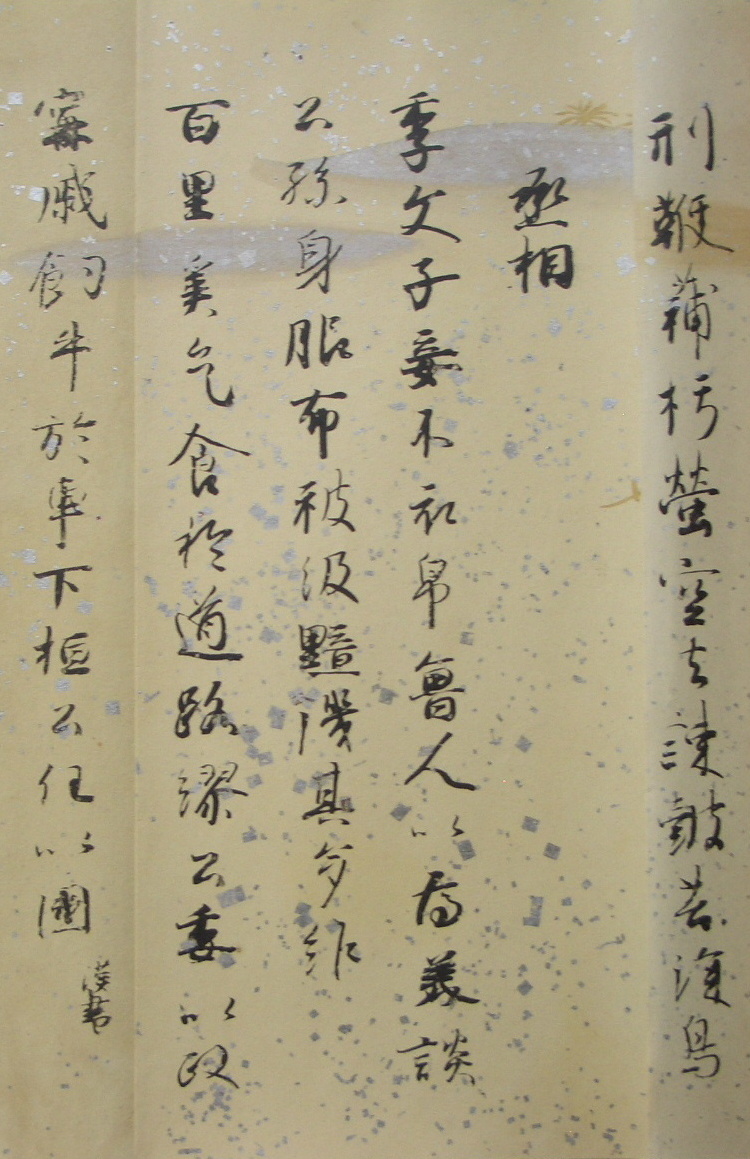 刑鞭蒲朽螢空去諫鼓苔深鳥
丞相
季文子妾不衣帛魯人以為美談
公孫身服布被汲黯譏其多詐
百里奚乞食於道路繆公委以政
甯戚飼牛於車下桓公任以國
漢書